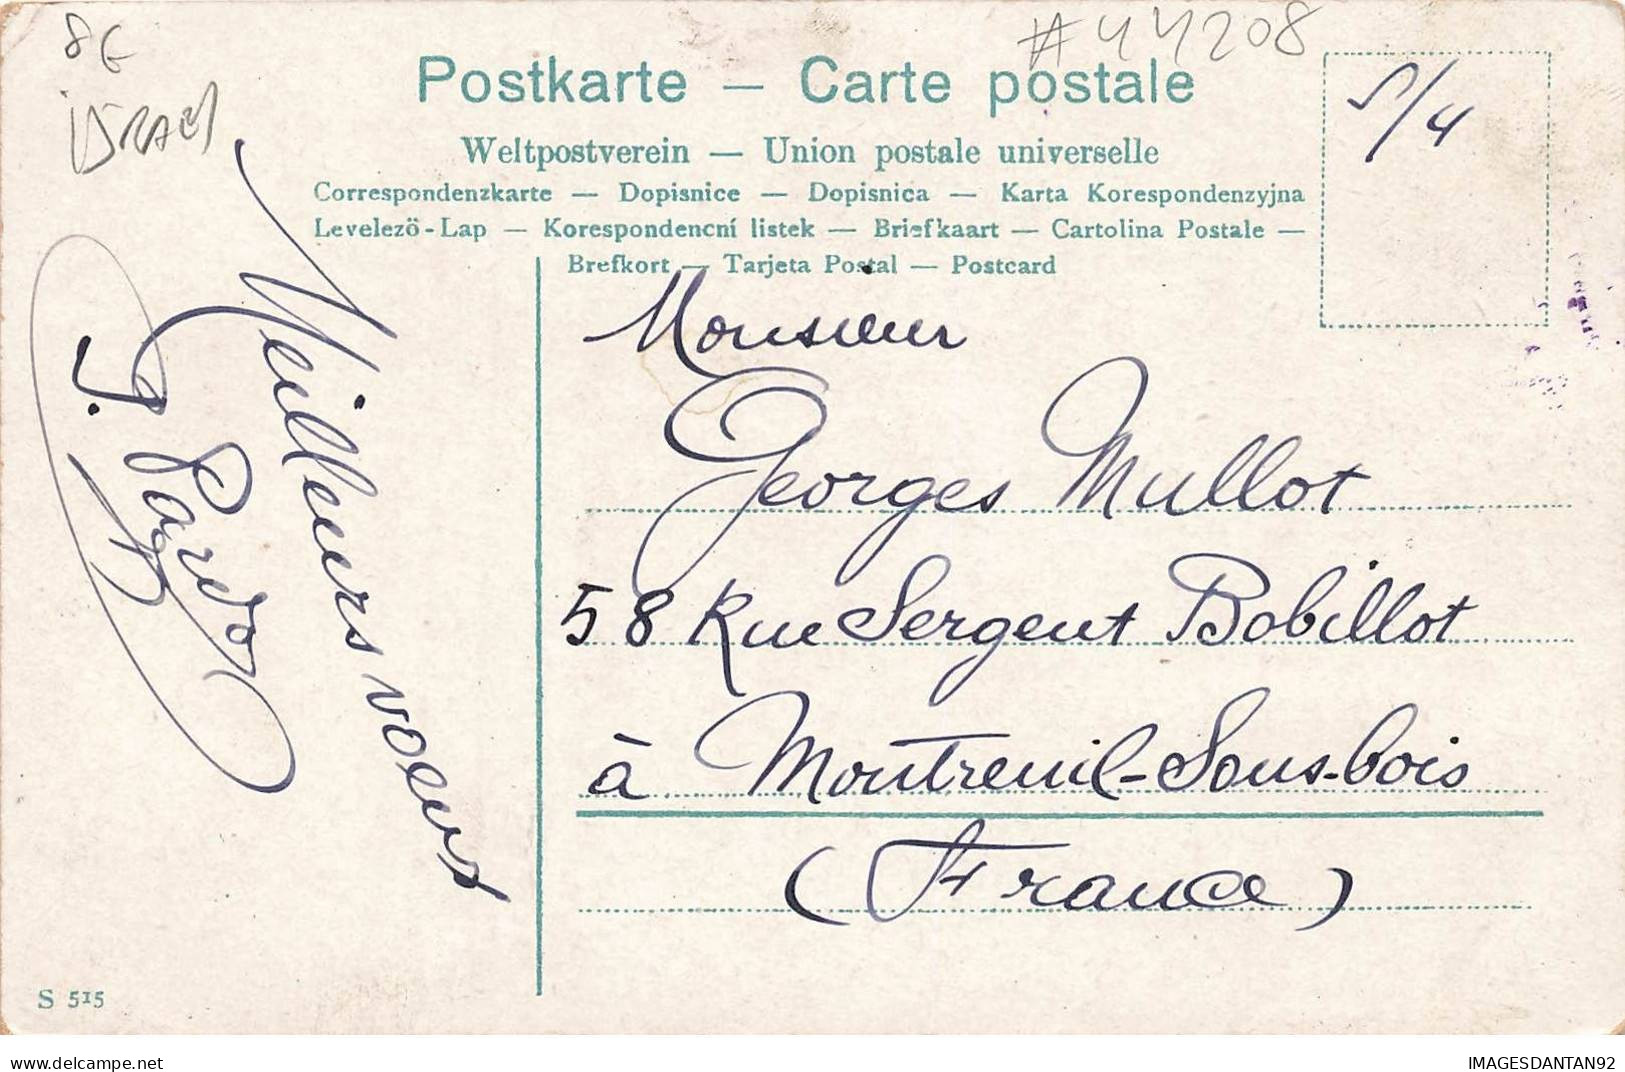 8€
ISRAEL
#44208
Postkarte — Carte postale
5/4
Weltpostverein — Union postale universelle
Correspondenzkarte — Dopisnice — Dopisnica — Karta Korespondenzyjna
Levelezö-Lap — Korespondencní listek — Briefkaart — Cartolina Postale —
Brefkort — Tarjeta Postal — Postcard
Meilleurs voeux
J. Pardo
Monsieur
Georges Mullot
58 Rue Sergent Bobillot
à Montreuil-Sous-bois
(France)
S 515
delcampe.net
IMAGESDANTAN92